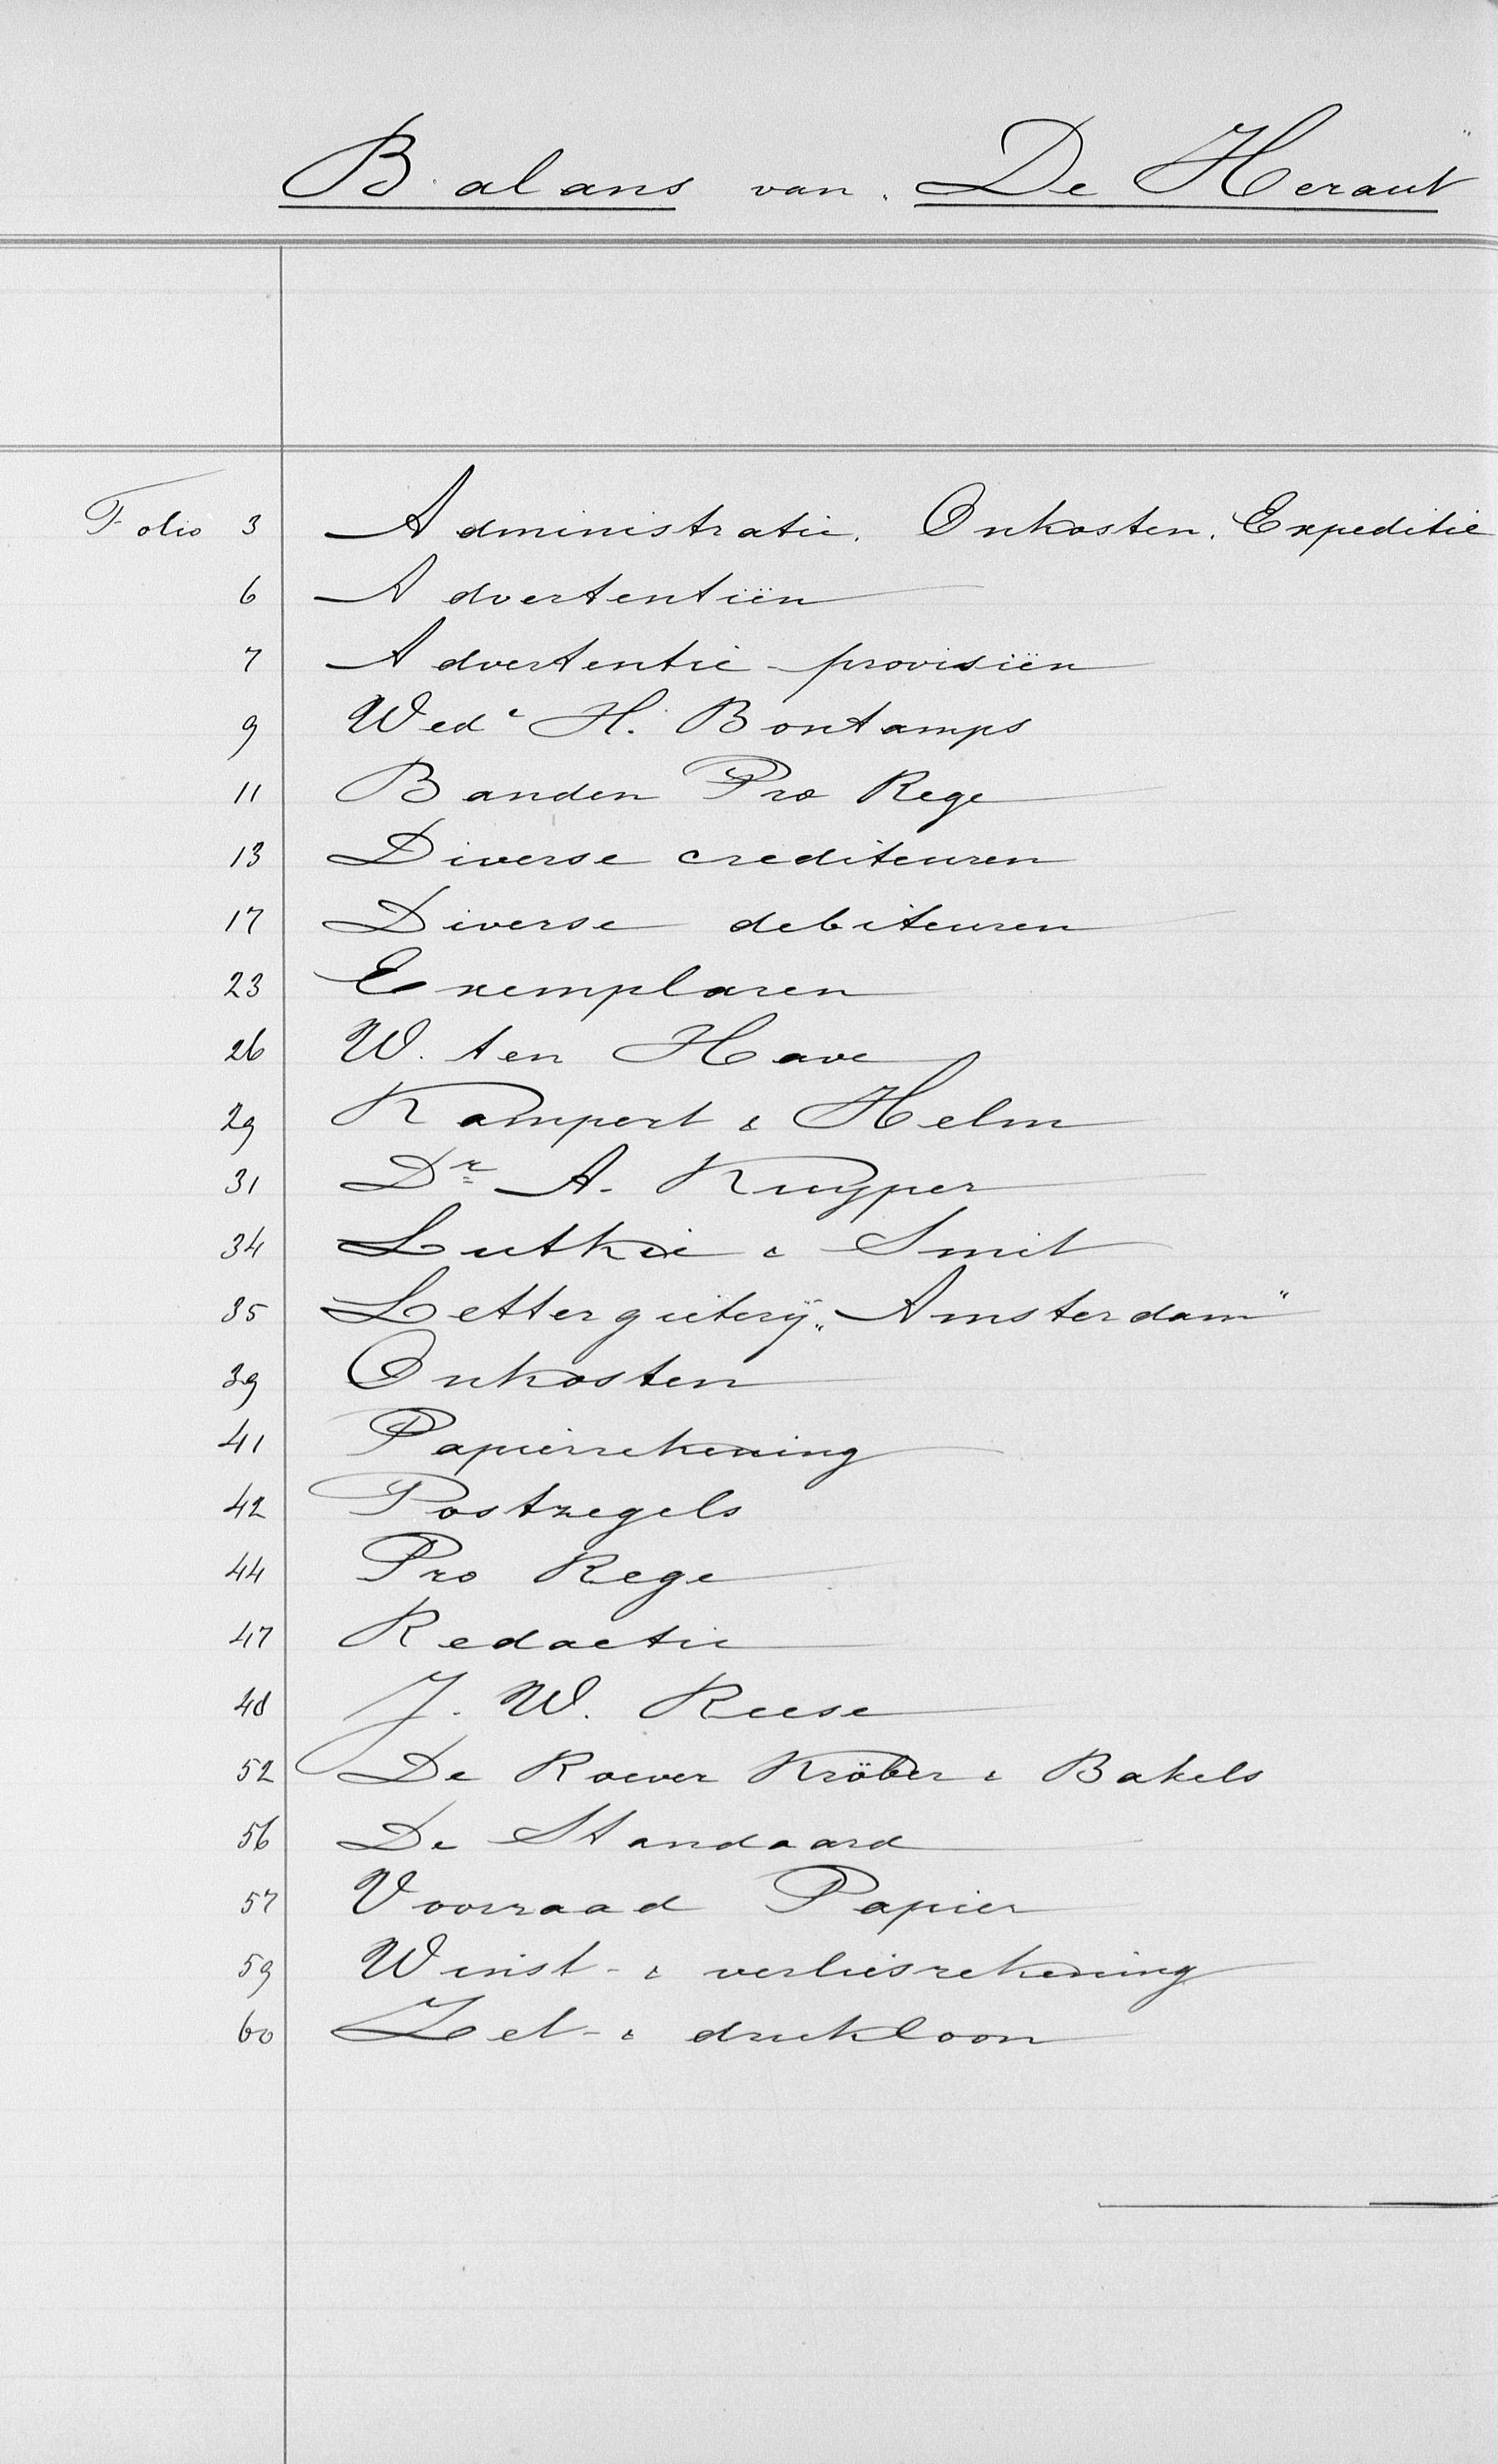 Balans van „De Heraut"
Folio 3 Administratie. Onkosten. Expeditie
6 Advertentiën
7 Advertentie-provisiën
9 Wede H. Bontamps
11 Banden Pro Rege
13 Diverse crediteuren
17 Diverse debiteuren
23 Exemplaren
26 W. ten Have
29 Kampert & Helm
31 Dr A. Kuyper
34 Lutkie & Smit
35 Lettergieterij „Amsterdam"
39 Onkosten
41 Papierrekening
42 Postzegels
44 Pro Rege
47 Redactie
48 J. W. Reese
52 De Roever Kröber & Bakels
56 De Standaard
57 Voorraad Papier
59 Winst- & verliesrekening
60 Zet- & drukloon